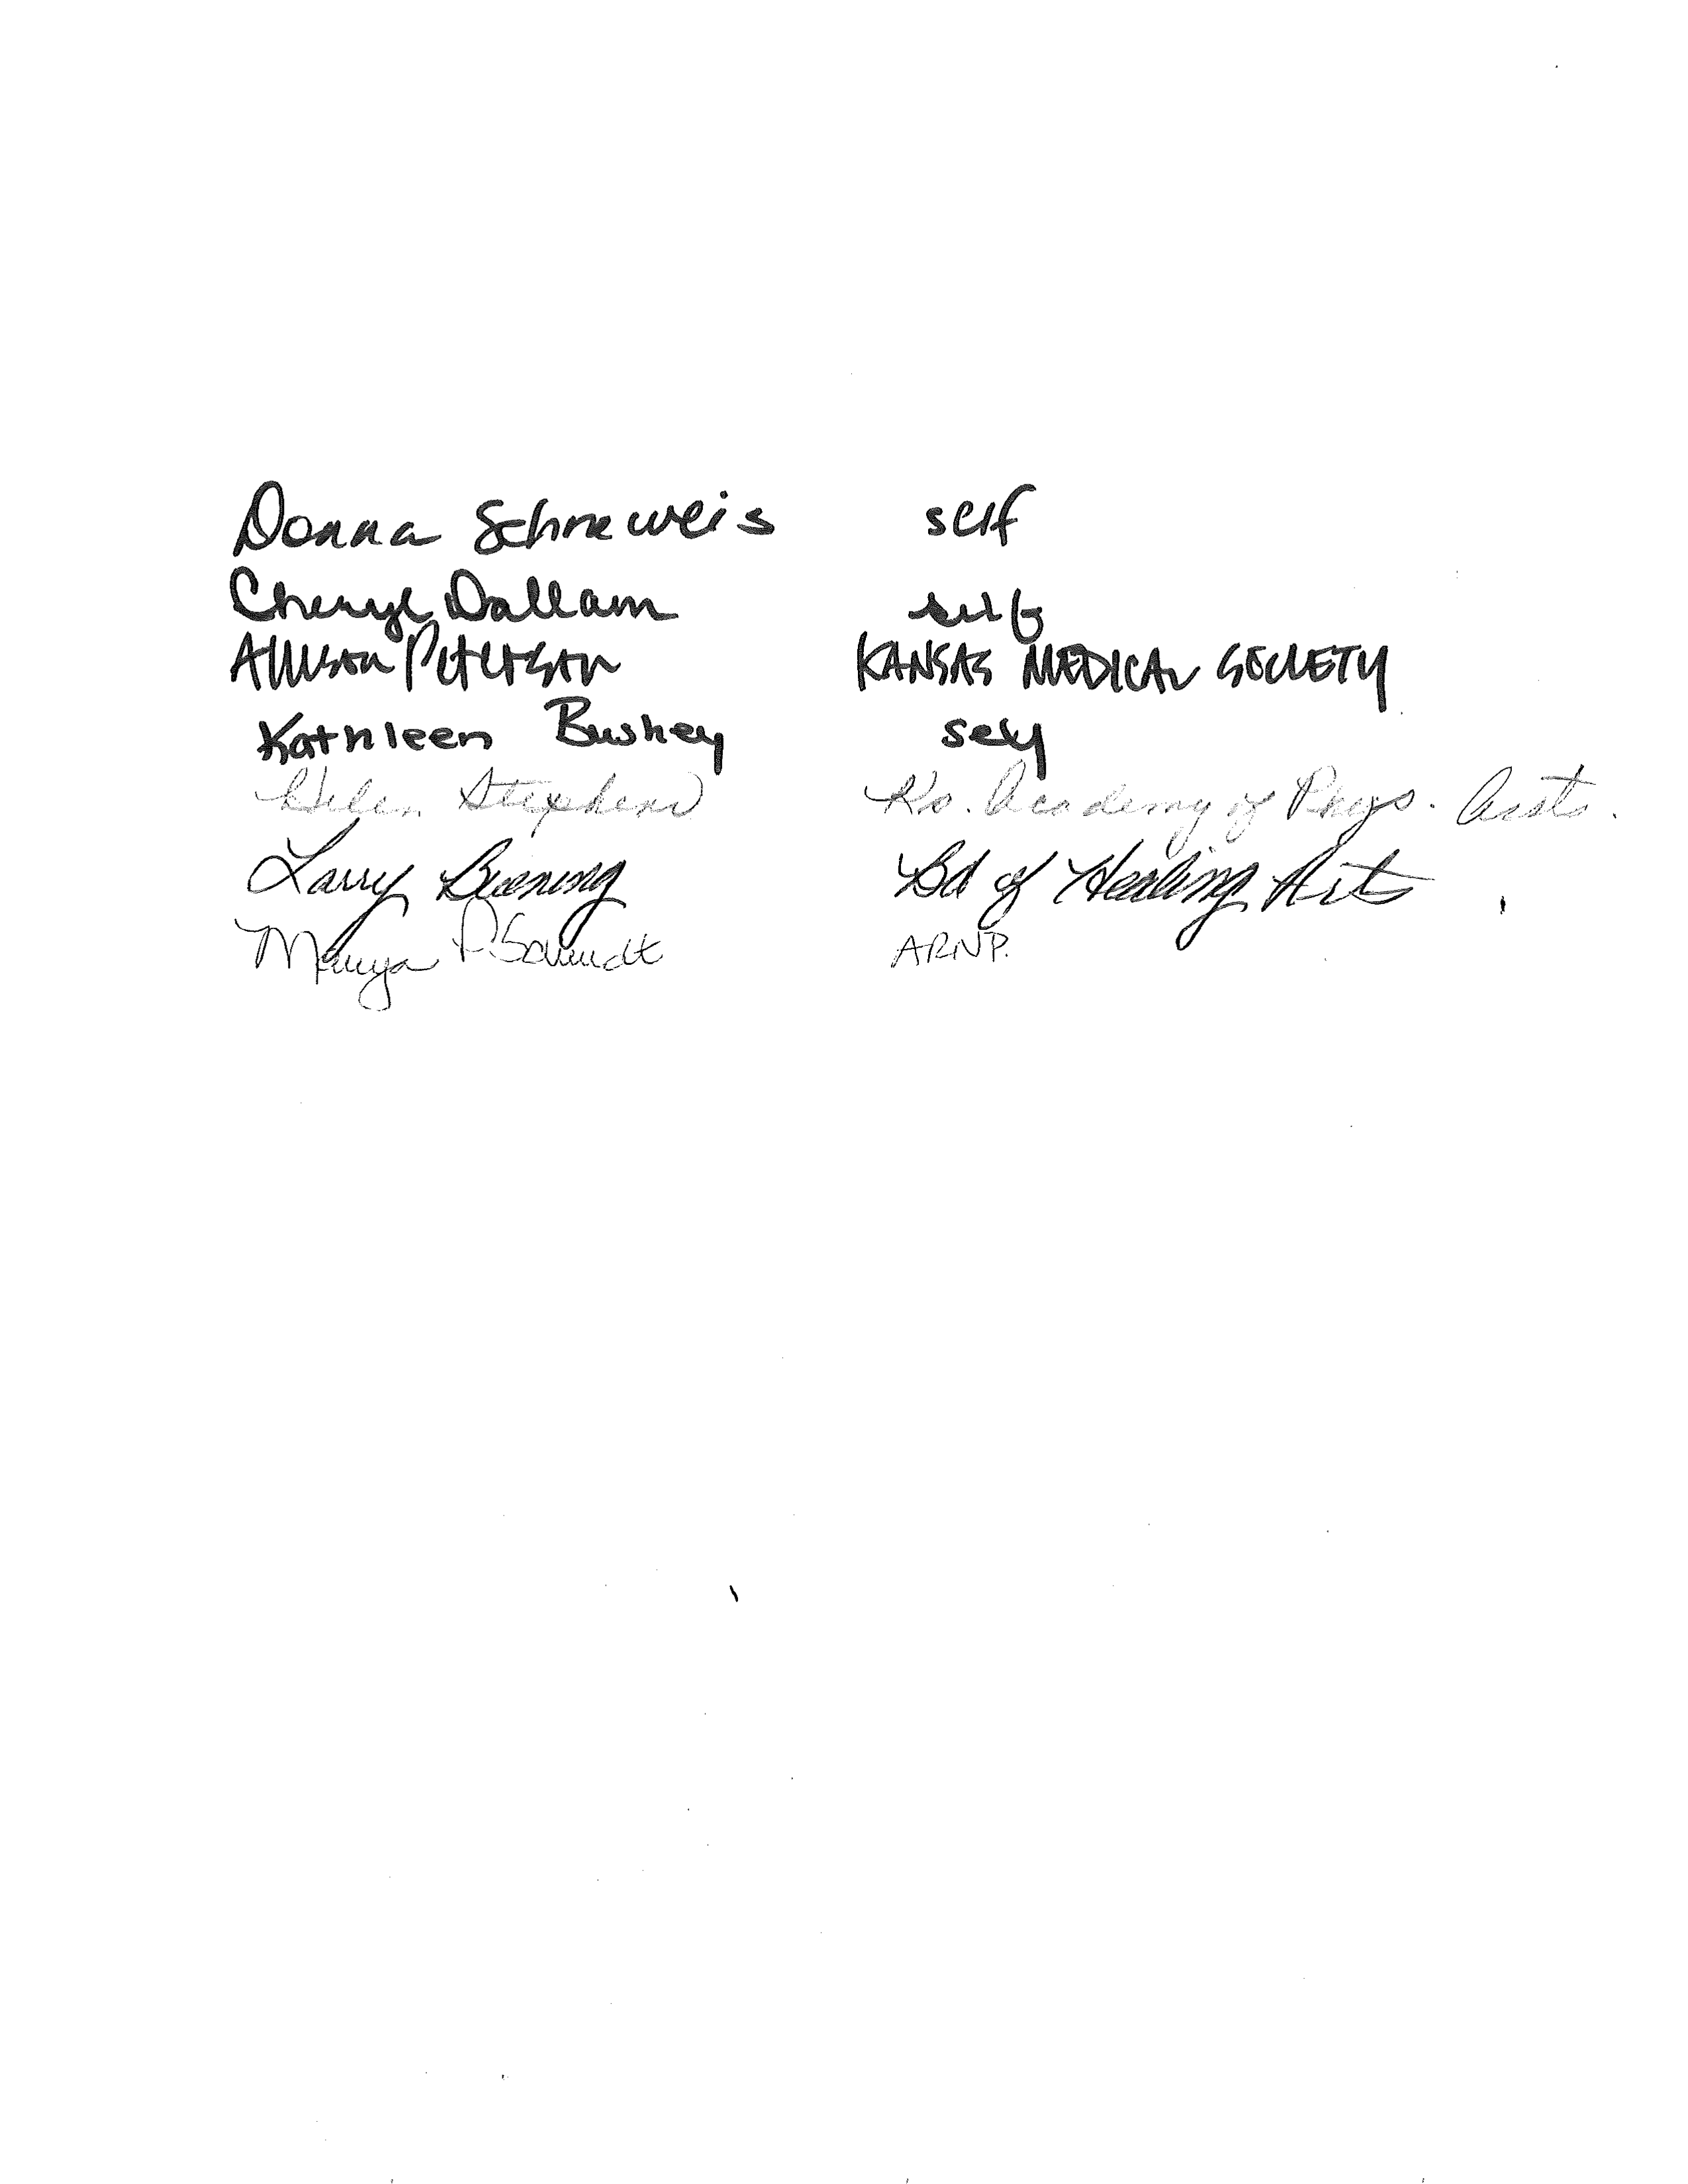 Donna Schneweis self
Cheryl Dallam self
Allison Peterson KANSAS MEDICAL SOCIETY
Kathleen Bushey self
Helen Stephens Ks. Academy of Phys. Assts.
Larry Buening Bd of Healing Arts
P. Schmidt ARNP.